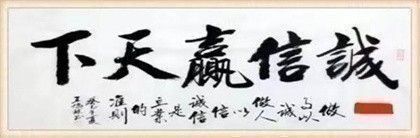 誠信贏天下
做事以誠做人以信誠信是立業的准則